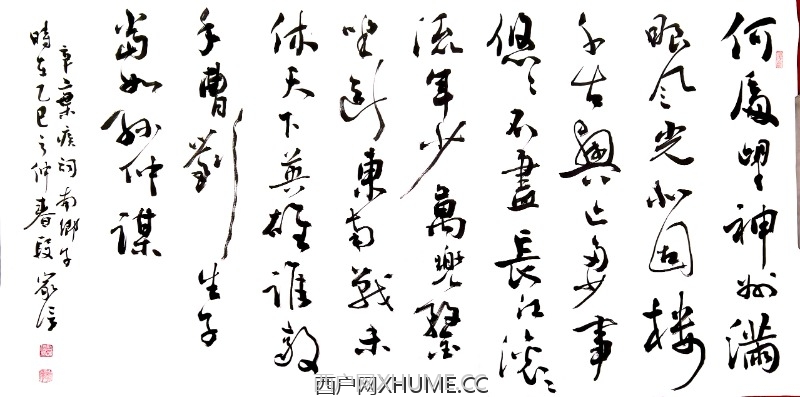 何處望神州滿
眼風光北固樓
千古興亡多少事
悠々不盡長江滾々
流年少萬兜鍪
坐斷東南戰未
休天下英雄誰敵
手曹劉生子
當如孫仲謀
辛棄疾詞南鄉子
時在乙巳之仲春段
西户网XHUME.CC